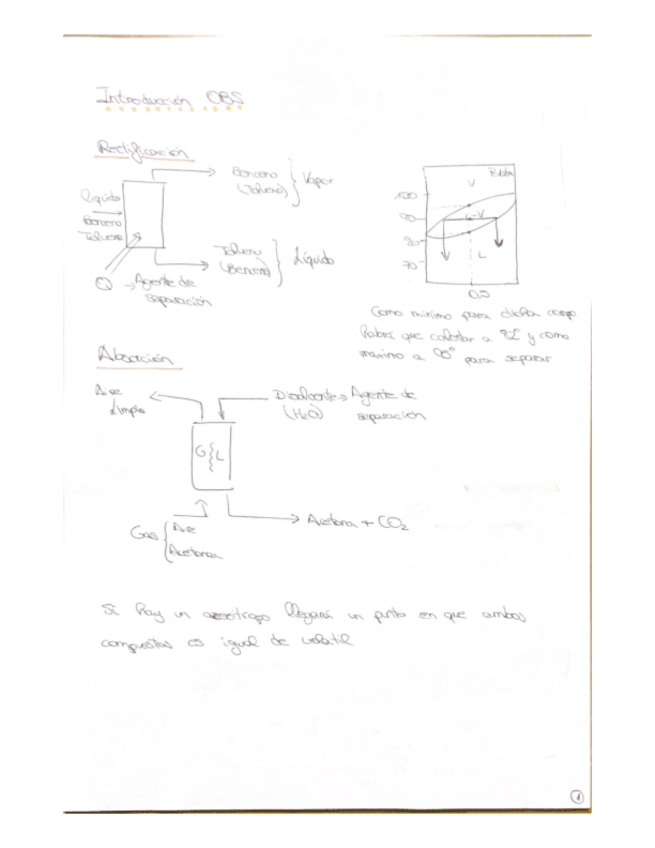 Introducción OBS
Rectificación
Líquido
Benceno
Tolueno
Q → Agente de
separación
Benceno
(Tolueno)
Vapor
Tolueno
(Benceno)
Líquido
V
L-V
L
100
90
80
70
0,5
Como mínimo para dicha comp
habrá que calentar a 92° y como
máximo a para separar
Absorción
Aire
limpio
Disolvente → Agente de
(H2O) separación
G L
Gas Aire
Acetona
Acetona + CO2
Si hay un azeótropo llegará un punto en que ambos
compuestos es igual de volátil
1